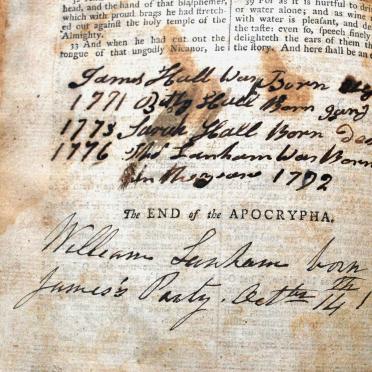 head, and the hand of that blasphemer,
which with proud brags he had stretch-
ed out against the holy temple of the
Almighty.
33 And when he had cut out the
tongue of that ungodly Nicanor, he
39 For as it is hurtful to drink
or water alone; and as wine
with water is pleasant, and de
the taste: even so, speech finely
delighteth the ears of them th
the story. And here shall be an
James Hall Was Born
1771 Betty Hall Born
1773 Sarah Hall Born Dec
1776 Thos Lanham Was Born
in the year 1792
The END of the APOCRYPHA.
William Lanham born
James's Party. Octbr 14th 1